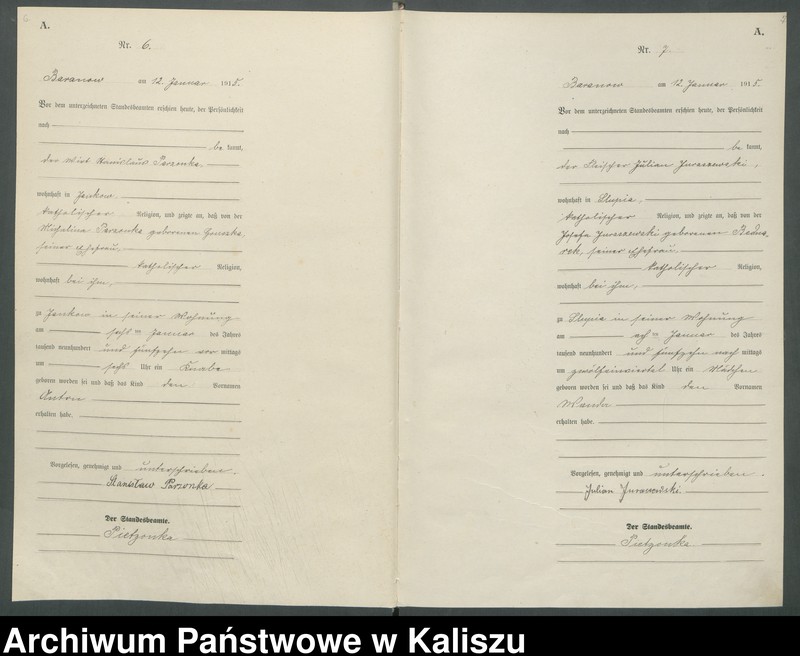 A.
Nr. 6.
Baranow am 12. Januar 1915.
Vor dem unterzeichneten Standesbeamten erschien heute, der Persönlichkeit
nach
be kannt,
der Wirt Stanislaus Parzonka,
wohnhaft in Jankow,
katholischer Religion, und zeigte an, daß von der
Michalina Parzonka geborenen
seiner Ehefrau,
katholischer Religion,
wohnhaft bei ihm,
zu Jankow in seiner Wohnung
am sechsten Januar des Jahres
tausend neunhundert und fünfzehn vor mittags
um sechs Uhr ein Knabe
geboren worden sei und daß das Kind den Vornamen
Anton
erhalten habe.
Vorgelesen, genehmigt und unterschrieben.
Stanisław Parzonka
Der Standesbeamte.
Pietzonka
A.
Nr. 7.
Baranow am 12. Januar 1915.
Vor dem unterzeichneten Standesbeamten erschien heute, der Persönlichkeit
nach
be kannt,
der Fleischer Julian Juraszewski,
wohnhaft in Slupia,
katholischer Religion, und zeigte an, daß von der
Josefa Juraszewski geborenen Bednarek,
seiner Ehefrau,
katholischer Religion,
wohnhaft bei ihm,
zu Slupia in seiner Wohnung
am achten Januar des Jahres
tausend neunhundert und fünfzehn nach mittags
um zwölfeinviertel Uhr ein Mädchen
geboren worden sei und daß das Kind den Vornamen
Wanda
erhalten habe.
Vorgelesen, genehmigt und unterschrieben.
Julian Juraszewski
Der Standesbeamte.
Pietzonka
Archiwum Państwowe w Kaliszu